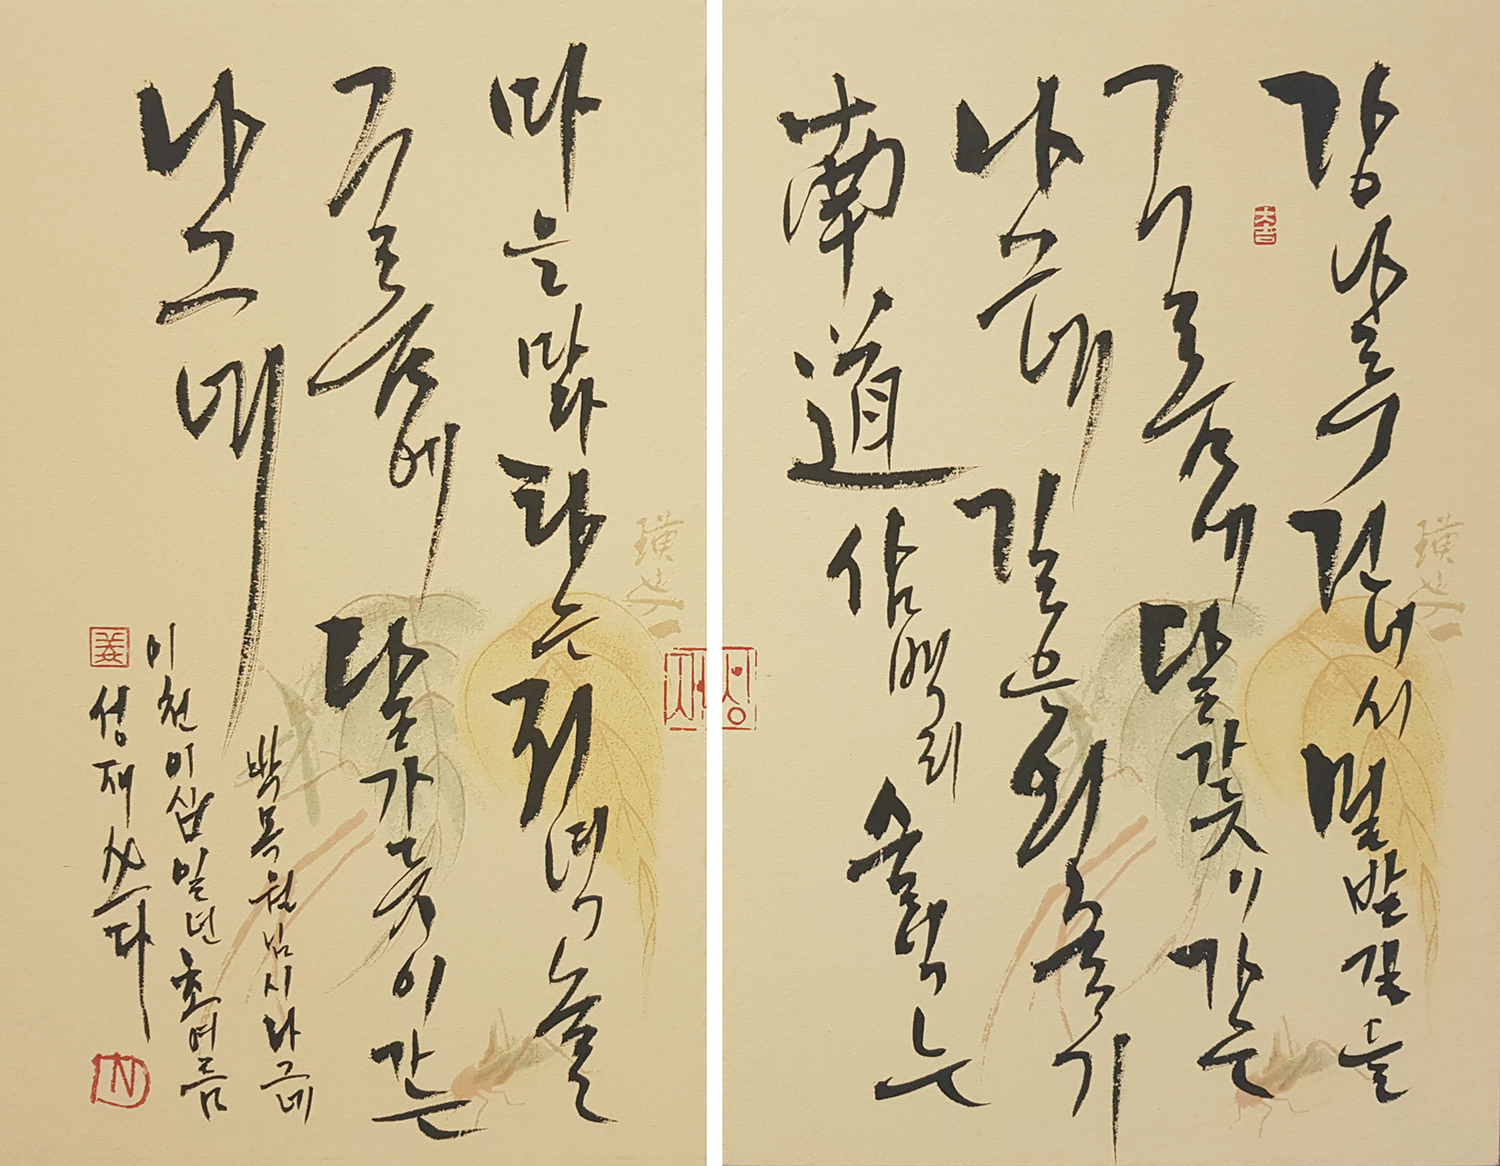 강나루 건너서 밀밭길을
구름에 달가듯이 가는
나그네 길은 외줄기
南道 삼백리 술익는
마을마다 타는 저녁놀
구름에 달가듯이 가는
나그네
박목월님 시 나그네
이천이십일년 초여름
성재 쓰다
大吉
姜